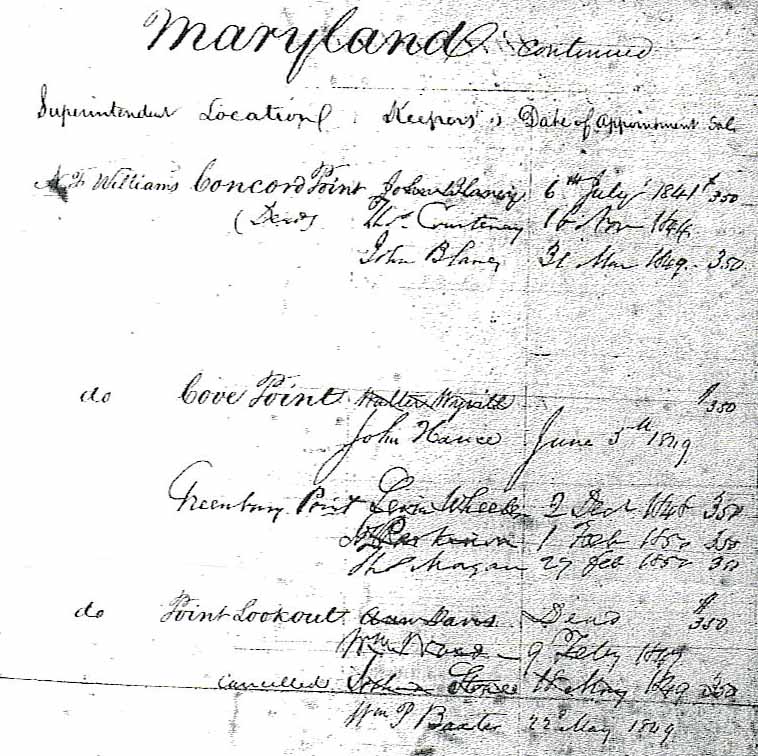 Maryland continued
Superintendent Location Keepers Date of Appointment Sal.
N F Williams Concord Point John Blaney 6th July 1841 $350
(Dead) Thos. Courtenay 16 Nov 1844
John Blaney 31 Mar 1849. 350
do Cove Point Walter Wyvill $350
John Hance June 5th 1849
Greenbury Point Levin Wheeler 2 Dec 350
Parkinson 1 Feb 1850 350
Thos Morgan 27 Feb 1850 350
do Point Lookout Ann Davis Dead $350
Wm Wood 9 Feby 1849
Cancelled Stone May 1849 350
Wm P Baxter 22d May 1849